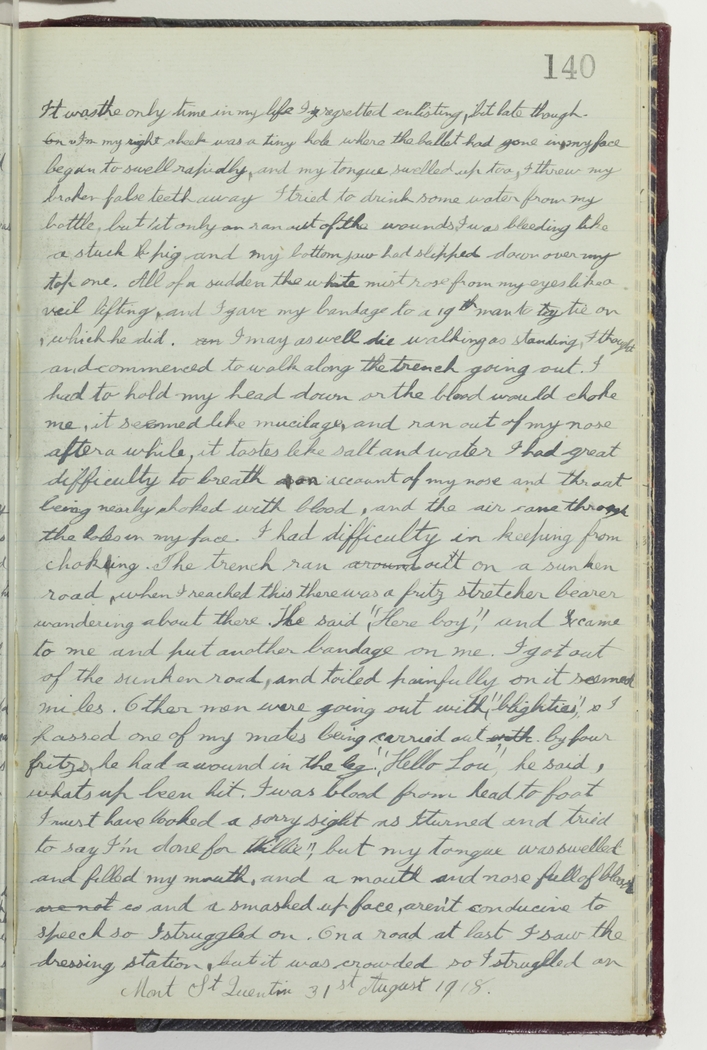 140
It was the only time in my life I regretted enlisting, but late though.
On my right cheek was a tiny hole where the bullet had gone in, my face
began to swell rapidly, and my tongue swelled up too, I threw my
broken false teeth away I tried to drink some water from my
bottle, but it only ran out of the wounds, I was bleeding like
a stuck pig and my bottom jaw had slipped down over my
top one. All of a sudden the white mist rose from my eyes like a
veil lifting, and I gave my bandage to a 19th man to tie on
, which he did. I may as well die walking as standing, I thought
and commenced to walk along the trench going out. I
had to hold my head down or the blood would choke
me, it seemed like mucilage, and ran out of my nose
after a while, it tastes like salt and water I had great
difficulty to breath on account of my nose and throat
being nearly choked with blood, and the air came through
the holes in my face. I had difficulty in keeping from
choking. The trench ran around out on a sunken
road, when I reached this there was a fritz stretcher bearer
wandering about there. He said "Here boy", and came
to me and put another bandage on me. I got out
of the sunken road, and toiled painfully on it seemed
miles. Other men were going out with "blighties", I
passed one of my mates being carried out with by four
fritzs, he had a wound in the leg. "Hello Lou", he said,
whats up been hit. I was blood from head to foot
I must have looked a sorry sight as I turned and tried
to say I'm done for Willie", but my tongue was swelled
and filled my mouth, and a mouth and nose full of blood
are not and a smashed up face, aren't conducive to
speech so I struggled on. On a road at last I saw the
dressing station, but it was crowded so I struggled on
Mont St Quentin 31st August 1918.